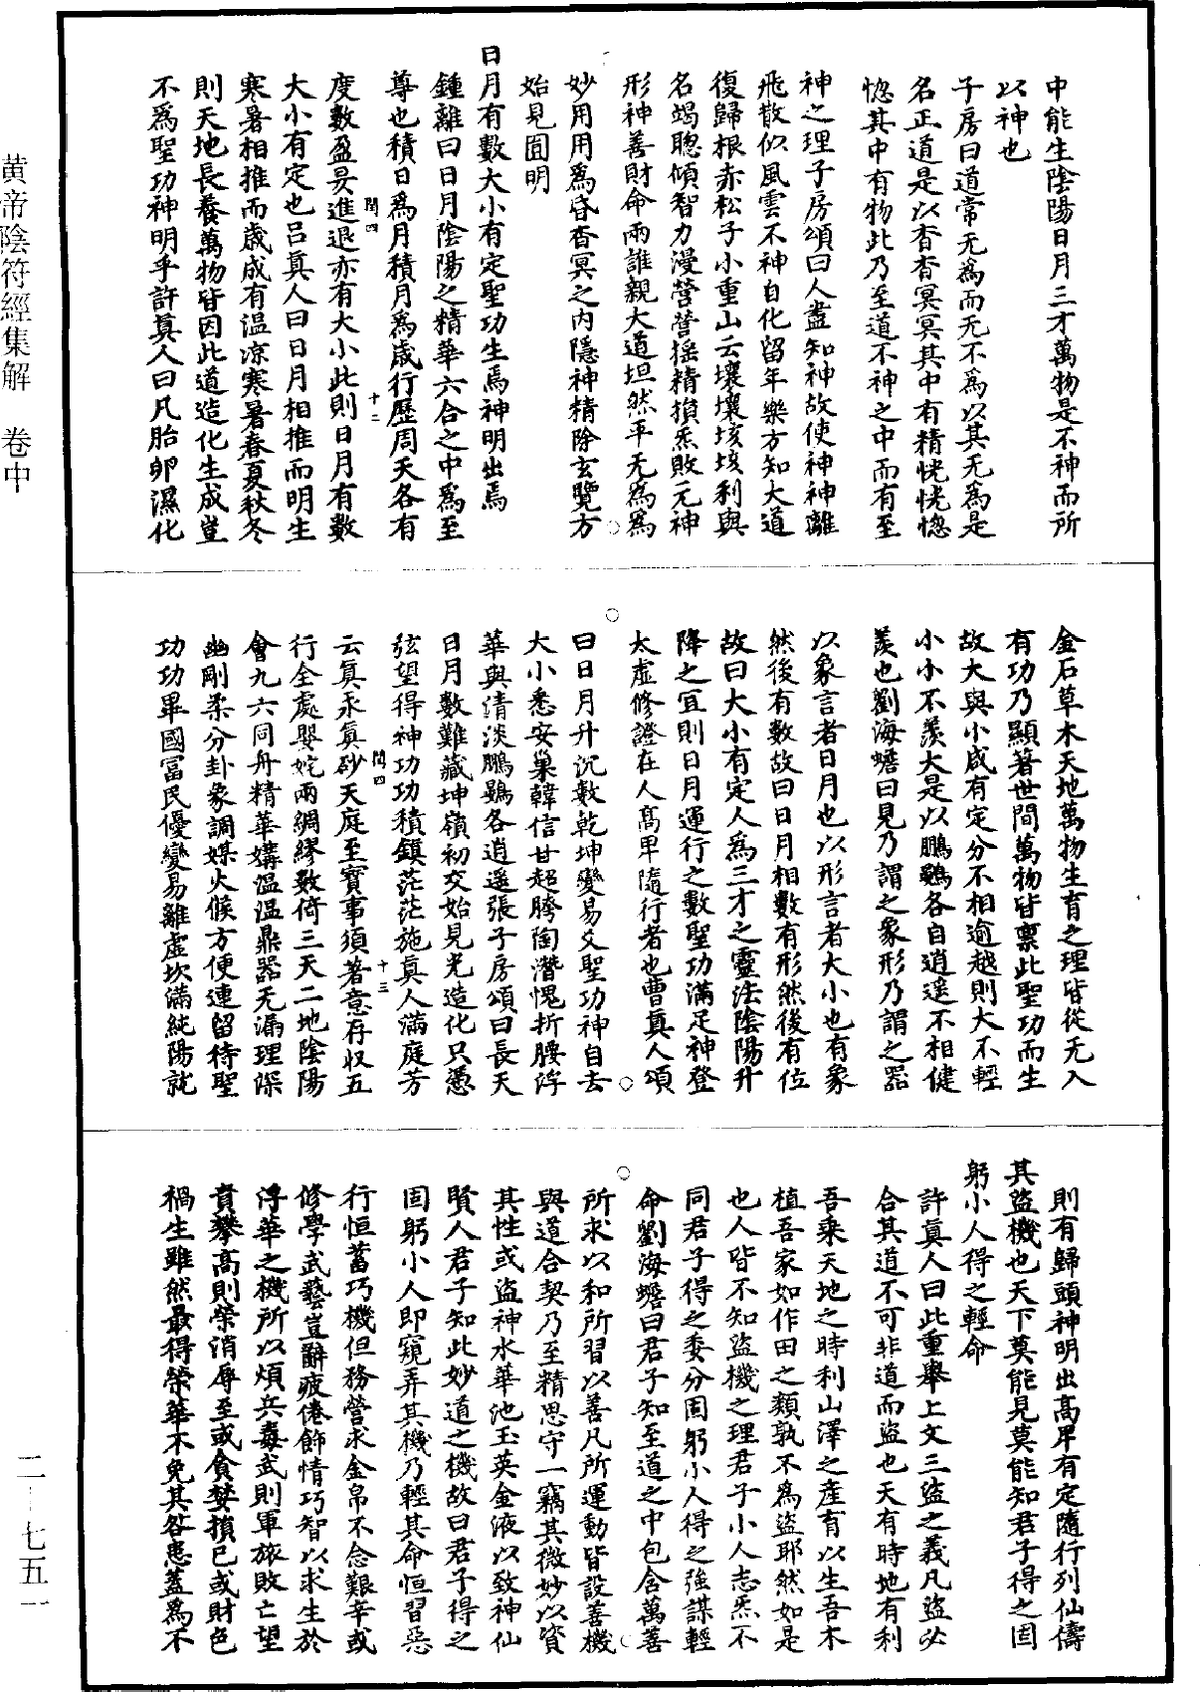 中能生陰陽日月三才萬物是不神而所
以神也
子房曰道常无為而无不為以其无為是
名正道是以杳杳冥冥其中有精恍恍惚
惚其中有物此乃至道不神之中而有至
神之理子房頌曰人盡知神故使神神離
飛散似風雲不神自化留年樂方知大道
復歸根赤松子小重山云壤壤垓垓利與
名竭聰傾智力漫營營搖精損炁敗元神
形神善財命兩誰親大道坦然平无為為
妙用用為昏杳冥之内隱神精除玄覽方
始見圓明
日月有數大小有定聖功生焉神明出焉
鍾離曰日月陰陽之精華六合之中為至
尊也積日為月積月為歲行歷周天各有
閏四
十二
度數盈昃進退亦有大小此則日月有數
大小有定也呂真人曰日月相推而明生
寒暑相推而歲成有温凉寒暑春夏秋冬
則天地長養萬物皆因此道造化生成豈
不為聖功神明乎許真人曰凡胎卵濕化
金石草木天地萬物生育之理皆從无入
有功乃顯著世間萬物皆禀此聖功而生
故大與小咸有定分不相逾越則大不輕
小小不羨大是以鵬鷃各自逍遥不相健
羨也劉海蟾曰見乃謂之象形乃謂之器
以象言者日月也以形言者大小也有象
然後有數故曰日月相數有形然後有位
故曰大小有定人為三才之靈法陰陽升
降之宜則日月運行之數聖功滿足神登
太虚修證在人高卑隨行者也曹真人頌
曰日月升沉數乾坤變易爻聖功神自去
大小悉安巢韓信甘超胯陶潛愧折腰浮
華與清淡鵬鷃各逍遥張子房頌曰長天
日月數難藏坤嶺初交始見光造化只憑
弦望得神功功積鎮茫茫施真人滿庭芳
閏四
十三
云真汞真砂天庭至寳事須著意存収五
行全處嬰姹兩綢繆數倚三天二地陰陽
會九六同舟精華媾温温鼎器无漏理深
幽剛柔分卦象調媒火候方便連留待聖
功功畢國富民優變易離虚坎滿純陽就
則有歸頭神明出高卑有定隨行列仙儔
其盗機也天下莫能見莫能知君子得之固
躬小人得之輕命
許真人曰此重舉上文三盗之義凡盗必
合其道不可非道而盗也天有時地有利
吾乘天地之時利山澤之産育以生吾木
植吾家如作田之類孰不為盗耶然如是
也人皆不知盗機之理君子小人志炁不
同君子得之委分固躬小人得之強謀輕
命劉海蟾曰君子知至道之中包含萬善
所求以和所習以善凡所運動皆設善機
與道合契乃至精思守一竊其微妙以資
其性或盗神水華池玉英金液以致神仙
賢人君子知此妙道之機故曰君子得之
固躬小人即窺弄其機乃輕其命恒習惡
行恒蓄巧機但務營求金帛不念艱辛或
修學武藝豈辭疲倦飾情巧智以求生於
浮華之機所以煩兵毒武則軍旅敗亡望
貴攀高則榮消辱至或貪婪損已或財色
禍生雖然最得榮華不免其咎患蓋為不
黄帝陰符經集解 卷中
二—七五一